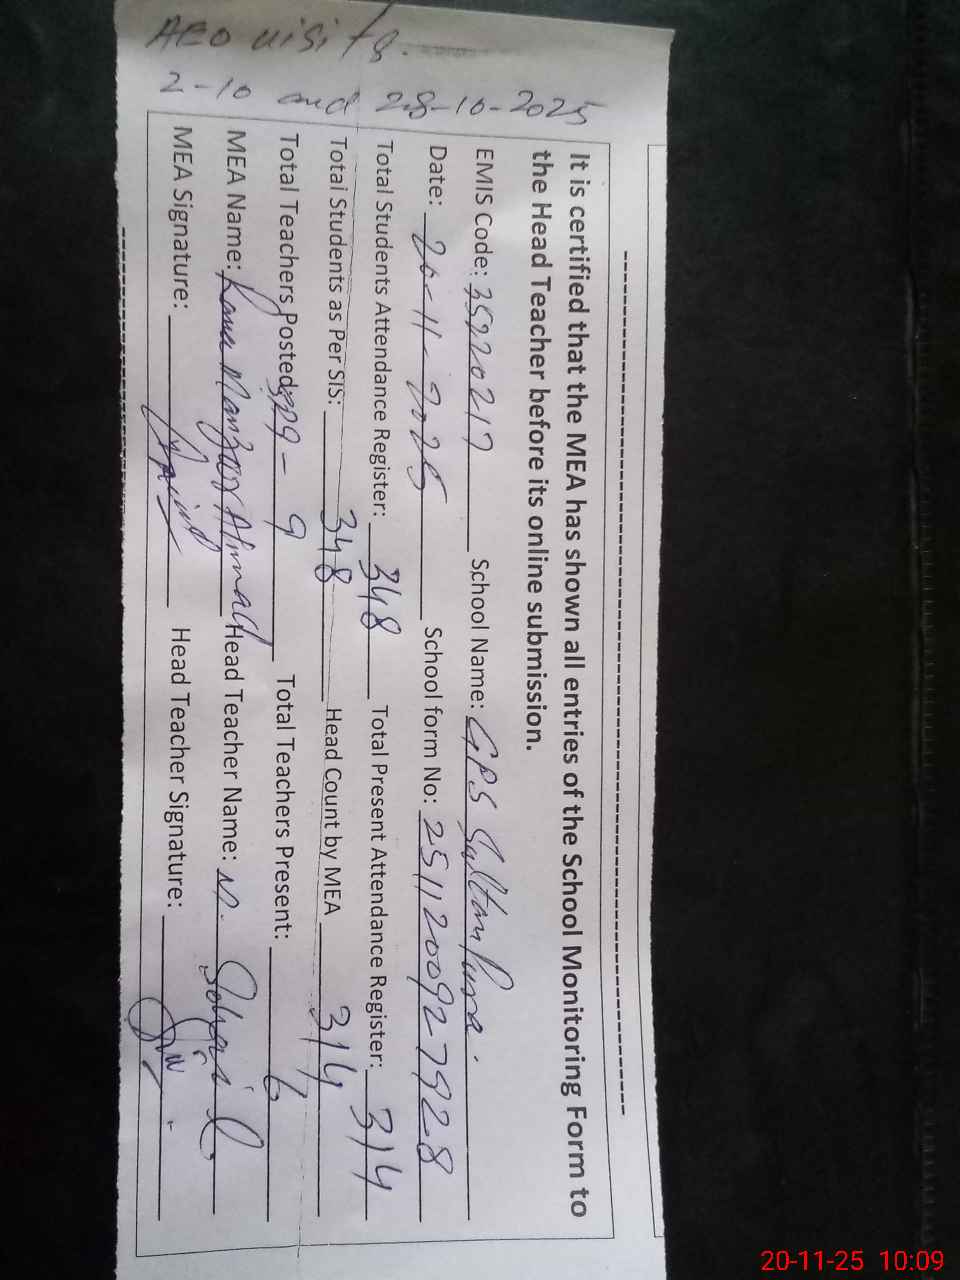 It is certified that the MEA has shown all entries of the School Monitoring Form to
the Head Teacher before its online submission.
EMIS Code: 35220217 School Name: GPS Sultan Pura.
Date: 20-11-2025 School form No: 2511200927928
Total Students Attendance Register: 348 Total Present Attendance Register: 314
Total Students as Per SIS: 348 Head Count by MEA 314
Total Teachers Posted: 9 Total Teachers Present: 6
MEA Name: Rana Manzoor Ahmad Head Teacher Name: M. Sohail
MEA Signature: Head Teacher Signature:
AEO visits.
2-10 and 28-10-2025
20-11-25 10:09